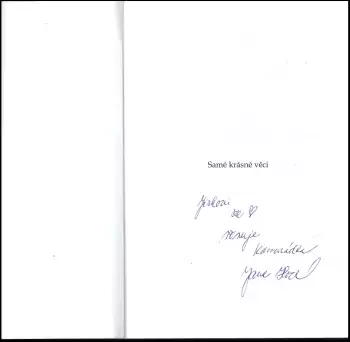 Samé krásné věci
ze ♡
věnuje
kamarádka
Jana